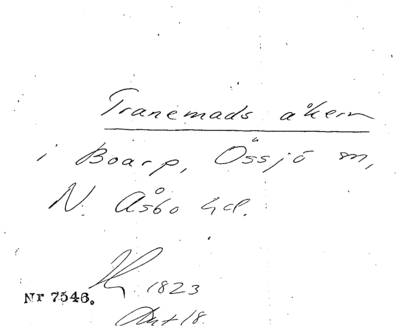 Tranemads åkern
i Boarp, Össjö sn,
N. Åsbo hd.
1823
Nr 7546.
18